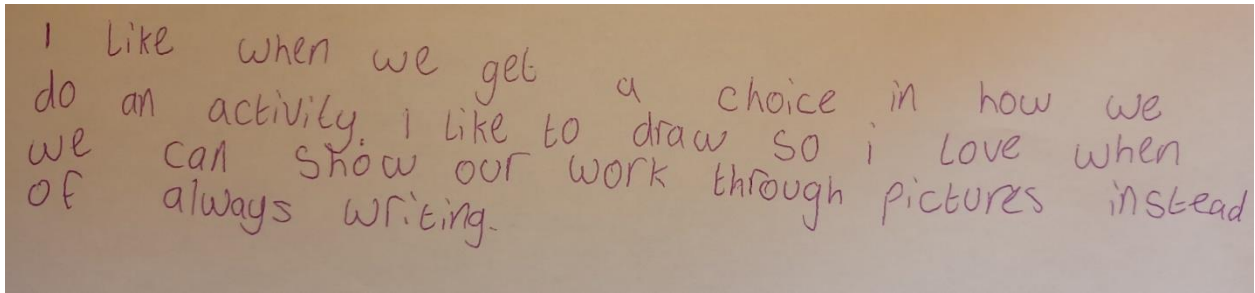 I like when we get a choice in how we
do an activity. I like to draw so i love when
we can show our work through pictures instead
of always writing.